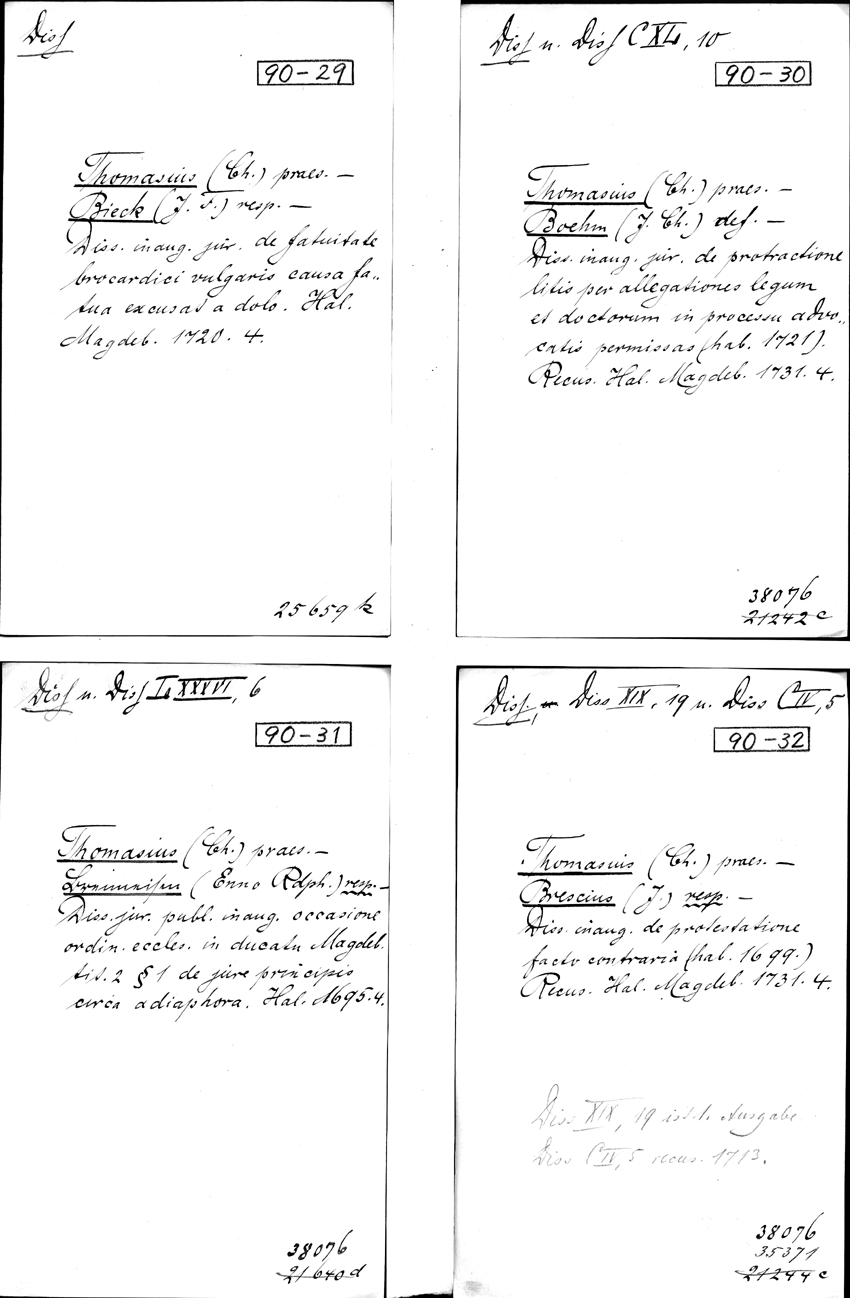 Diss
90-29
Thomasius (Ch.) praes. —
Bieck (J. F.) resp. —
Diss. inaug. jur. de fatuitate
brocardici vulgaris causa fa„
tua excusat a dolo. Hal.
Magdeb. 1720. 4.
25659 k
Diss u. Diss CXL, 10
90-30
Thomasius (Ch.) praes. —
Boehm (J. Ch.) def. —
Diss. inaug. jur. de protractione
litis per allegationes legum
et doctorum in processu advo„
catis permissas (hab. 1721).
Recus. Hal. Magdeb. 1731. 4.
38076
21242 c
Diss u. Diss LXXXVI, 6
90-31
Thomasius (Ch.) praes. —
Brenneisen (Enno Rdph.) resp. —
Diss. jur. publ. inaug. occasione
ordin. eccles. in ducatu Magdeb.
tit. 2 § 1 de jure principis
circa adiaphora. Hal. 1695. 4.
38076
21640 d
Diss., u. Diss XIX, 19 u. Diss CIV, 5
90-32
Thomasius (Ch.) praes. —
Brescius (J.) resp. —
Diss. inaug. de protestatione
facto contraria (hab. 1699.)
Recus. Hal. Magdeb. 1731. 4.
Diss XIX, 19 ist 1. Ausgabe
Diss CIV, 5 recus. 1713.
38076
35371
21244 c